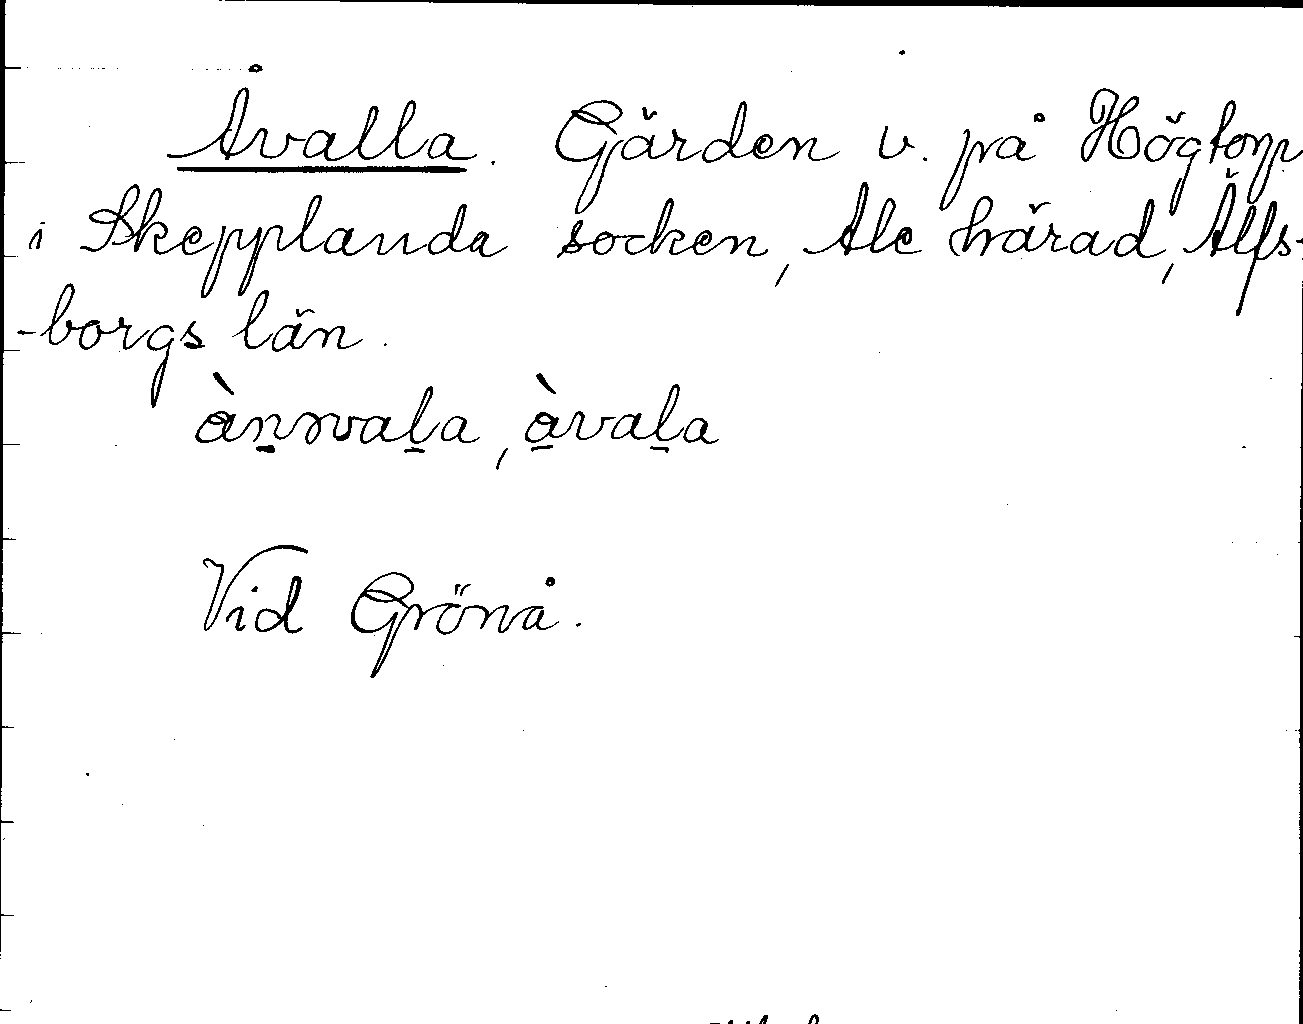 Åvalla. Gärden v. på Högtorp
i Skepplanda socken, Ale härad, Älfs-
-borgs län.
àvala
Vid Grönå.